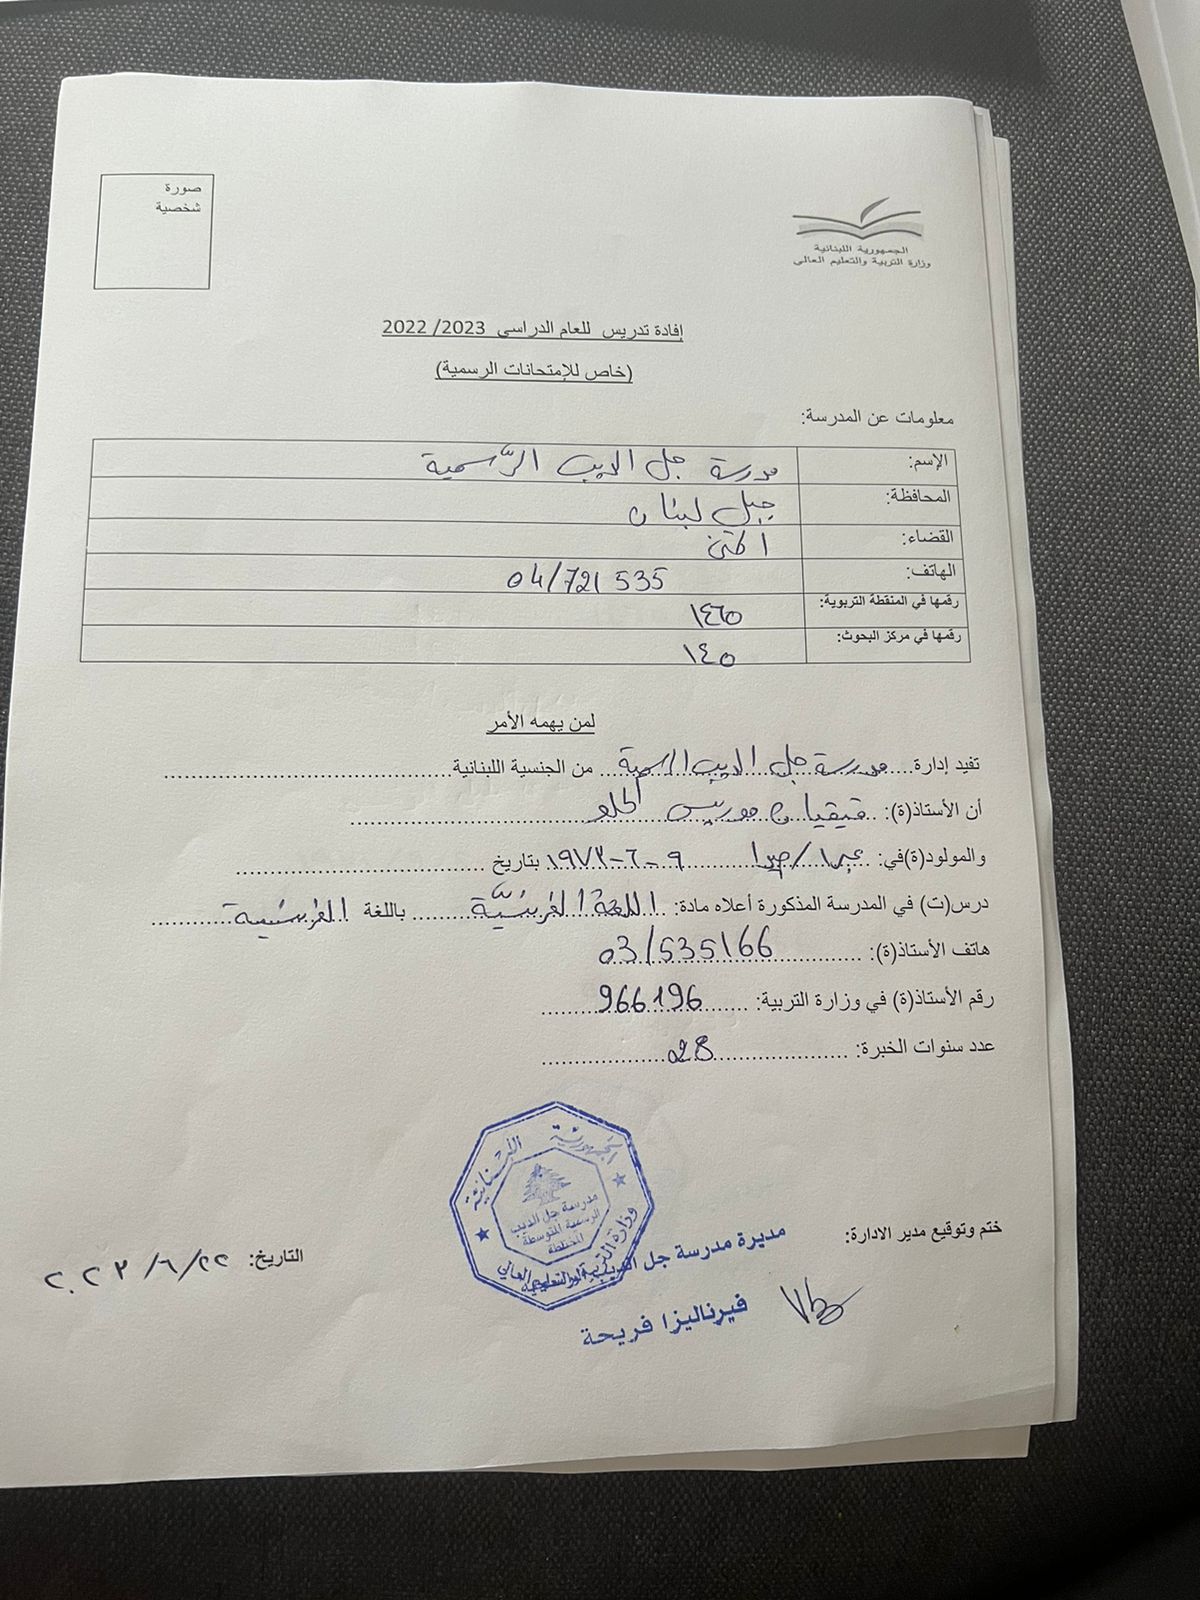 صورة
شخصية
الجمهورية اللبنانية
وزارة التربية والتعليم العالي
إفادة تدريس للعام الدراسي 2023/ 2022
(خاص للإمتحانات الرسمية)
معلومات عن المدرسة:
الإسم: مدرسة جل الديب الرّسمية
المحافظة: جبل لبنان
القضاء: المتن
الهاتف: 04/721 535
رقمها في المنقطة التربوية: ١٤٦٥
رقمها في مركز البحوث: ١٤٥
لمن يهمه الأمر
تفيد إدارة.... مدرسة جل الديب الرسمية ... من الجنسية اللبنانية
أن الأستاذ(ة): ڤيڤيان موريس الحلو
والمولود(ة)في: عبرا / صيدا ٩-٦-١٩٧٣ بتاريخ
درس(ت) في المدرسة المذكورة أعلاه مادة: اللغة الفرنسيّة باللغة الفرنسية
هاتف الأستاذ(ة): 03/535166
رقم الأستاذ(ة) في وزارة التربية: 966196
عدد سنوات الخبرة: 28
الجمهورية اللبنانية
مدرسة جل الديب
الرسمية المتوسطة
المختلطة
وزارة التربية والتعليم العالي
ختم وتوقيع مدير الادارة:
مديرة مدرسة جل الديب
فيرناليزا فريحة
التاريخ: ٢٠٢٣/٦/٢٢